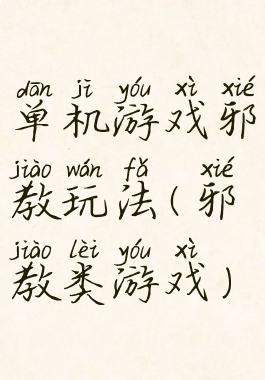 dān jī yóu xì xié
单机游戏邪
jiào wán fǎ xié
教玩法(邪
jiào lèi yóu xì
教类游戏)